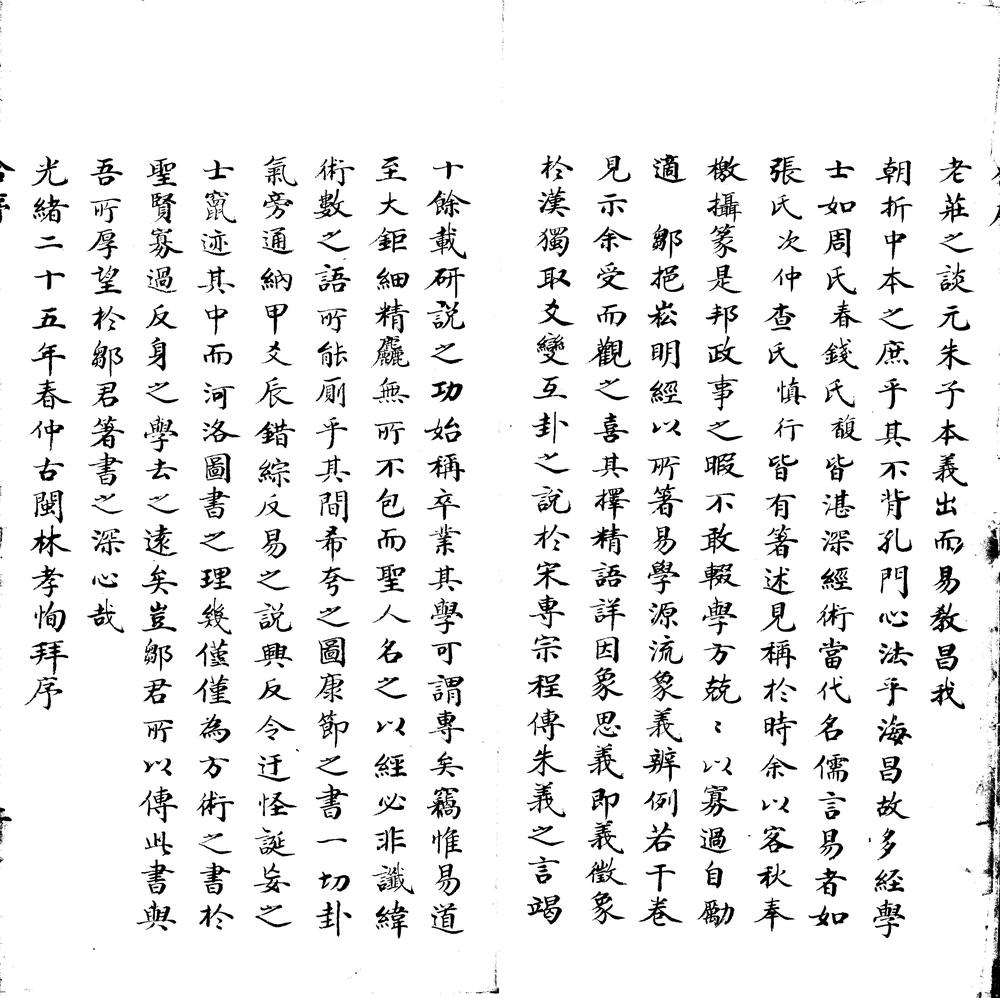 老莊之談元朱子本義出而易教昌我
朝折中本之庶乎其不背孔門心法乎海昌故多經學
士如周氏春錢氏馥皆湛深經術當代名儒言易者如
張氏次仲查氏慎行皆有著述見稱於時余以客秋奉
檄攝篆是邦政事之暇不敢輟學方兢〻以寡過自勵
適 鄒挹崧明經以所箸易學源流象義辨例若干卷
見示余受而觀之喜其擇精語詳因象思義即義徵象
於漢獨取爻變互卦之說於宋專宗程傳朱義之言竭
十餘載研說之功始稱卒業其學可謂專矣竊惟易道
至大鉅細精麤無所不包而聖人名之以經必非讖緯
術數之語所能厠乎其間希夸之圖康節之書一切卦
氣旁通納甲爻辰錯綜反易之說興反令迂怪誕妄之
士竄迹其中而河洛圖書之理幾僅僅為方術之書於
聖賢寡過反身之學去之遠矣豈鄒君所以傳此書與
吾所厚望於鄒君箸書之深心哉
光緒二十五年春仲古閩林孝恂拜序